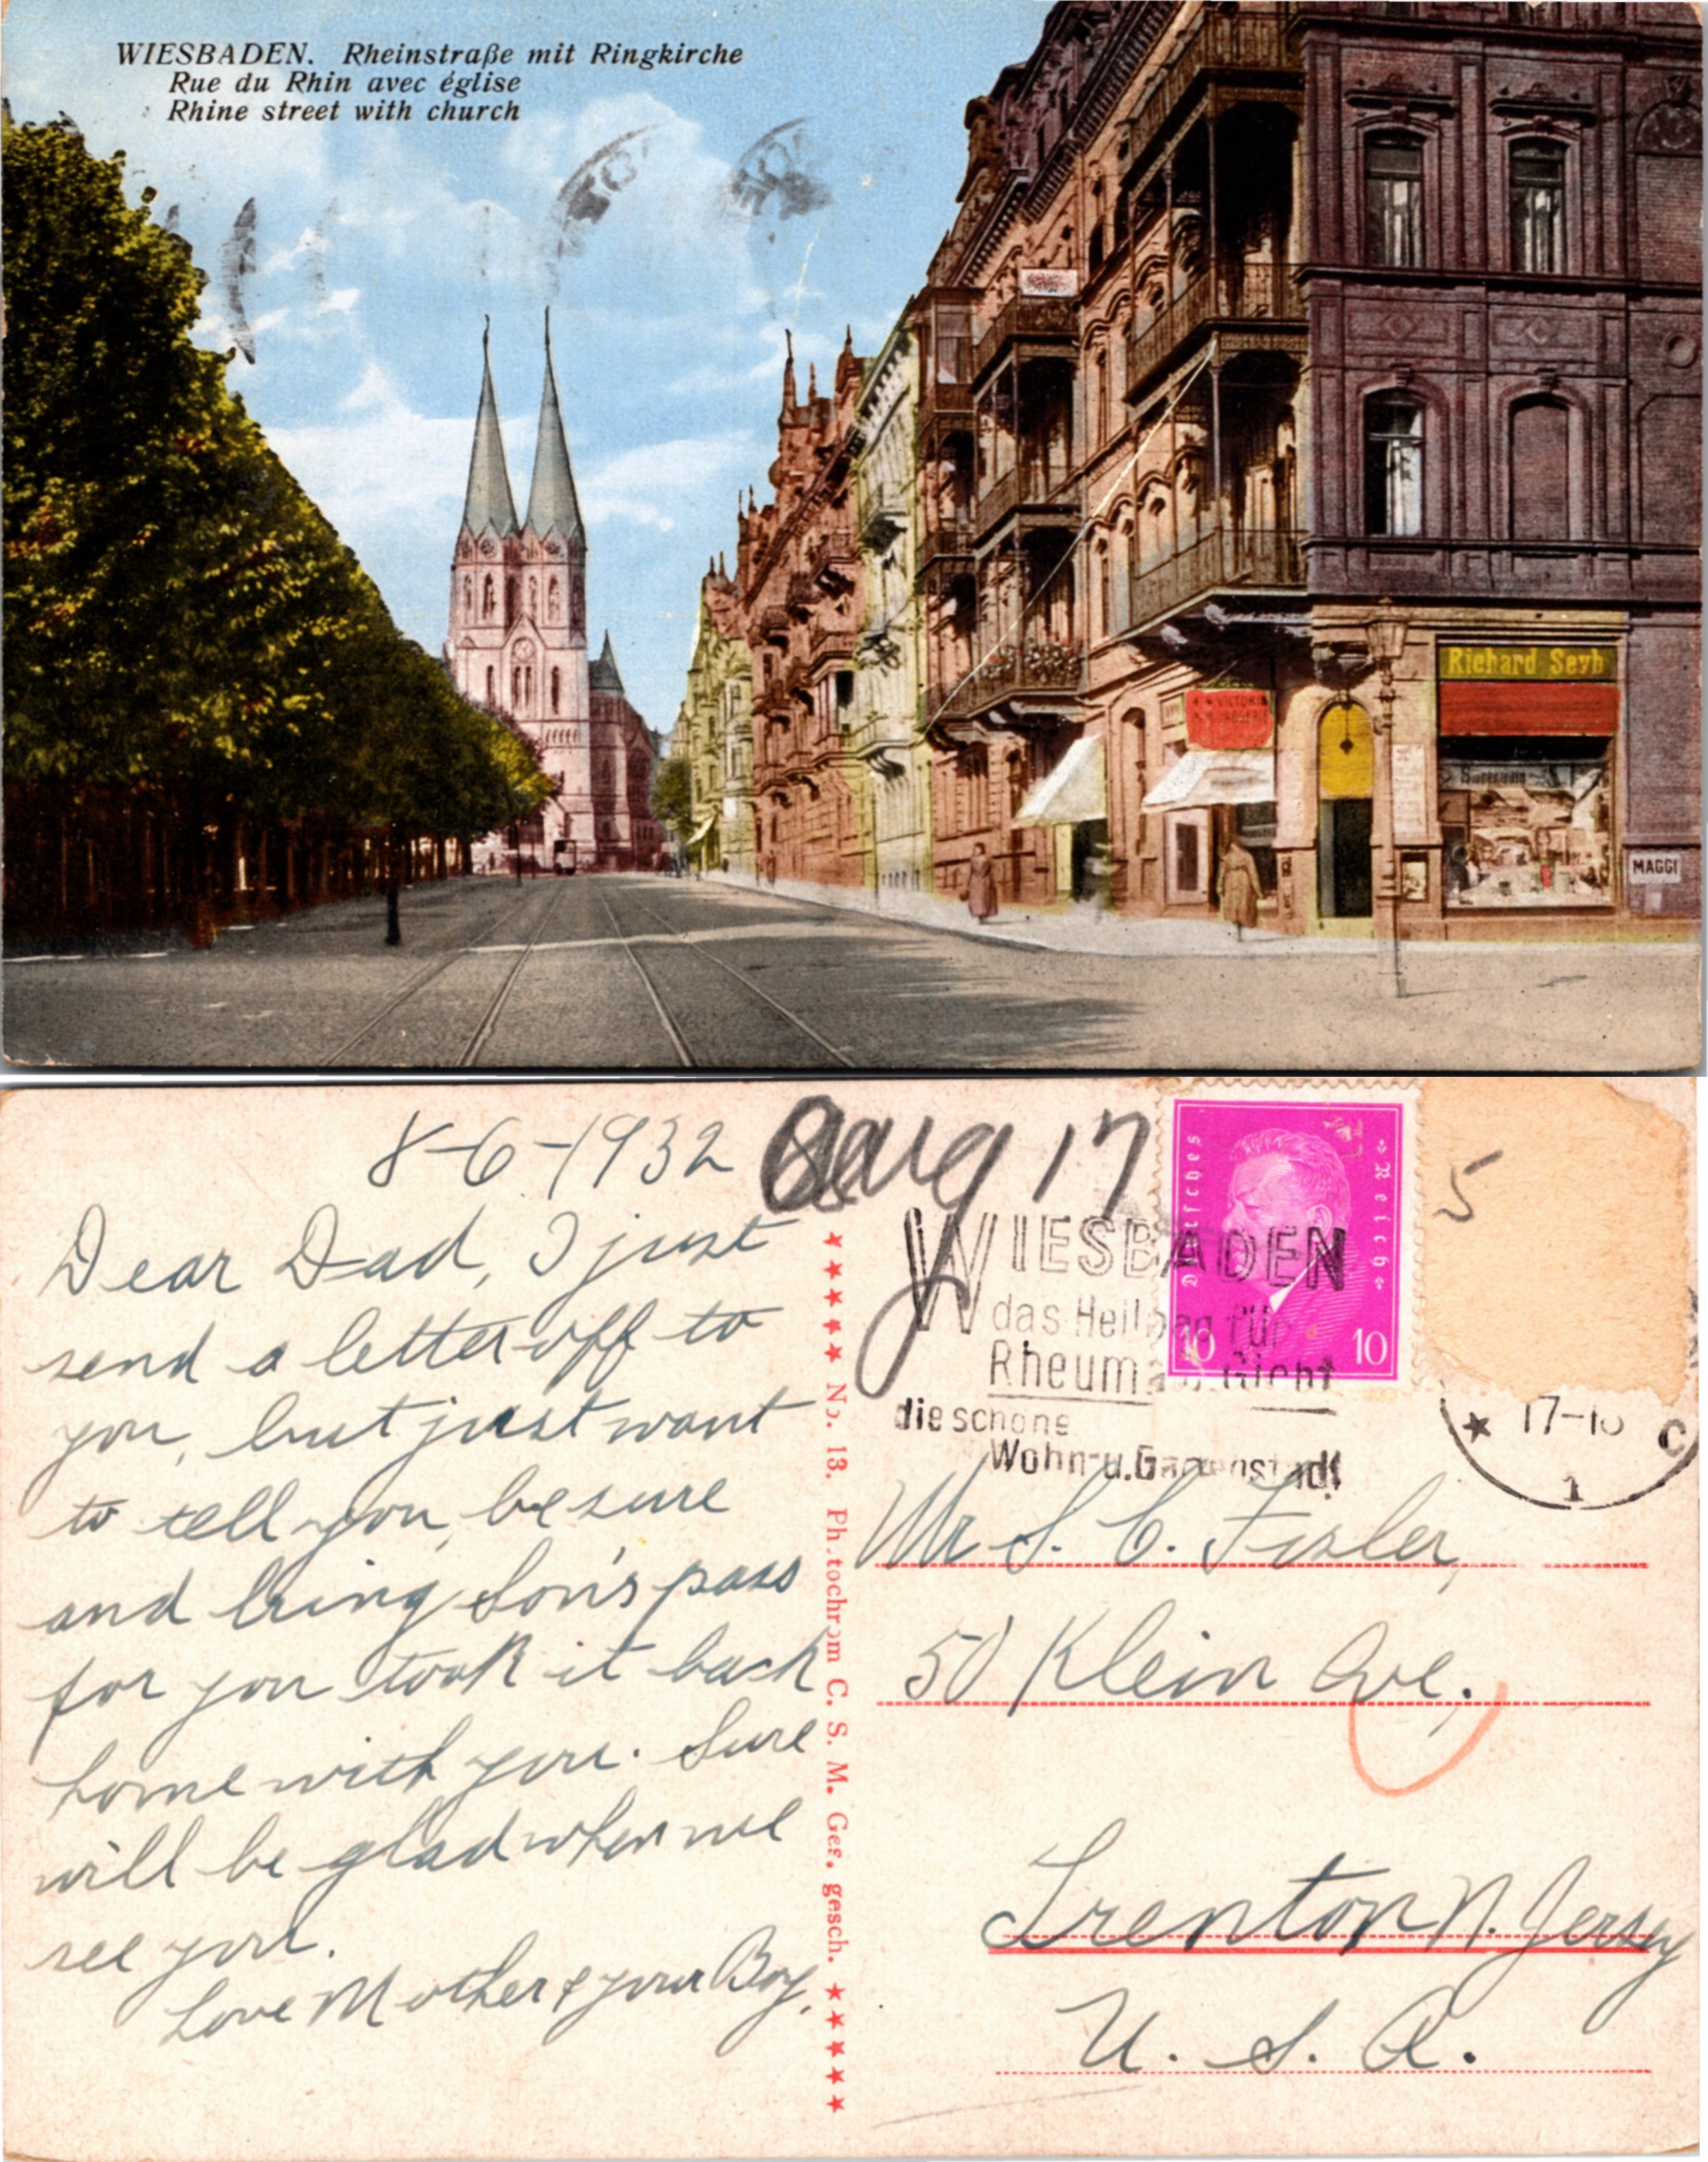 WIESBADEN. Rheinstraße mit Ringkirche
Rue du Rhin avec église
Rhine street with church
Richard Seyb
MAGGI
8-6-1932
Dear Dad, I just
send a letter off to
you, but just want
to tell you, be sure
and bring Son's pass
for you took it back
home with you. Sure
will be glad when we
see you.
Love Mother & your Boy.
★★★★★ No. 13. Photochrom C. S. M. Ges. gesch. ★★★★★
Aug 17
Deutsches Reich
10 10
5
WIESBADEN
das Heilbad für
Rheuma u. Gicht
die schöne
Wohn- u. Gartenstadt!
★ 17-18 C
1
Mr S. C. Fisler,
50 Klein Ave.,
Trenton N. Jersey
U. S. A.